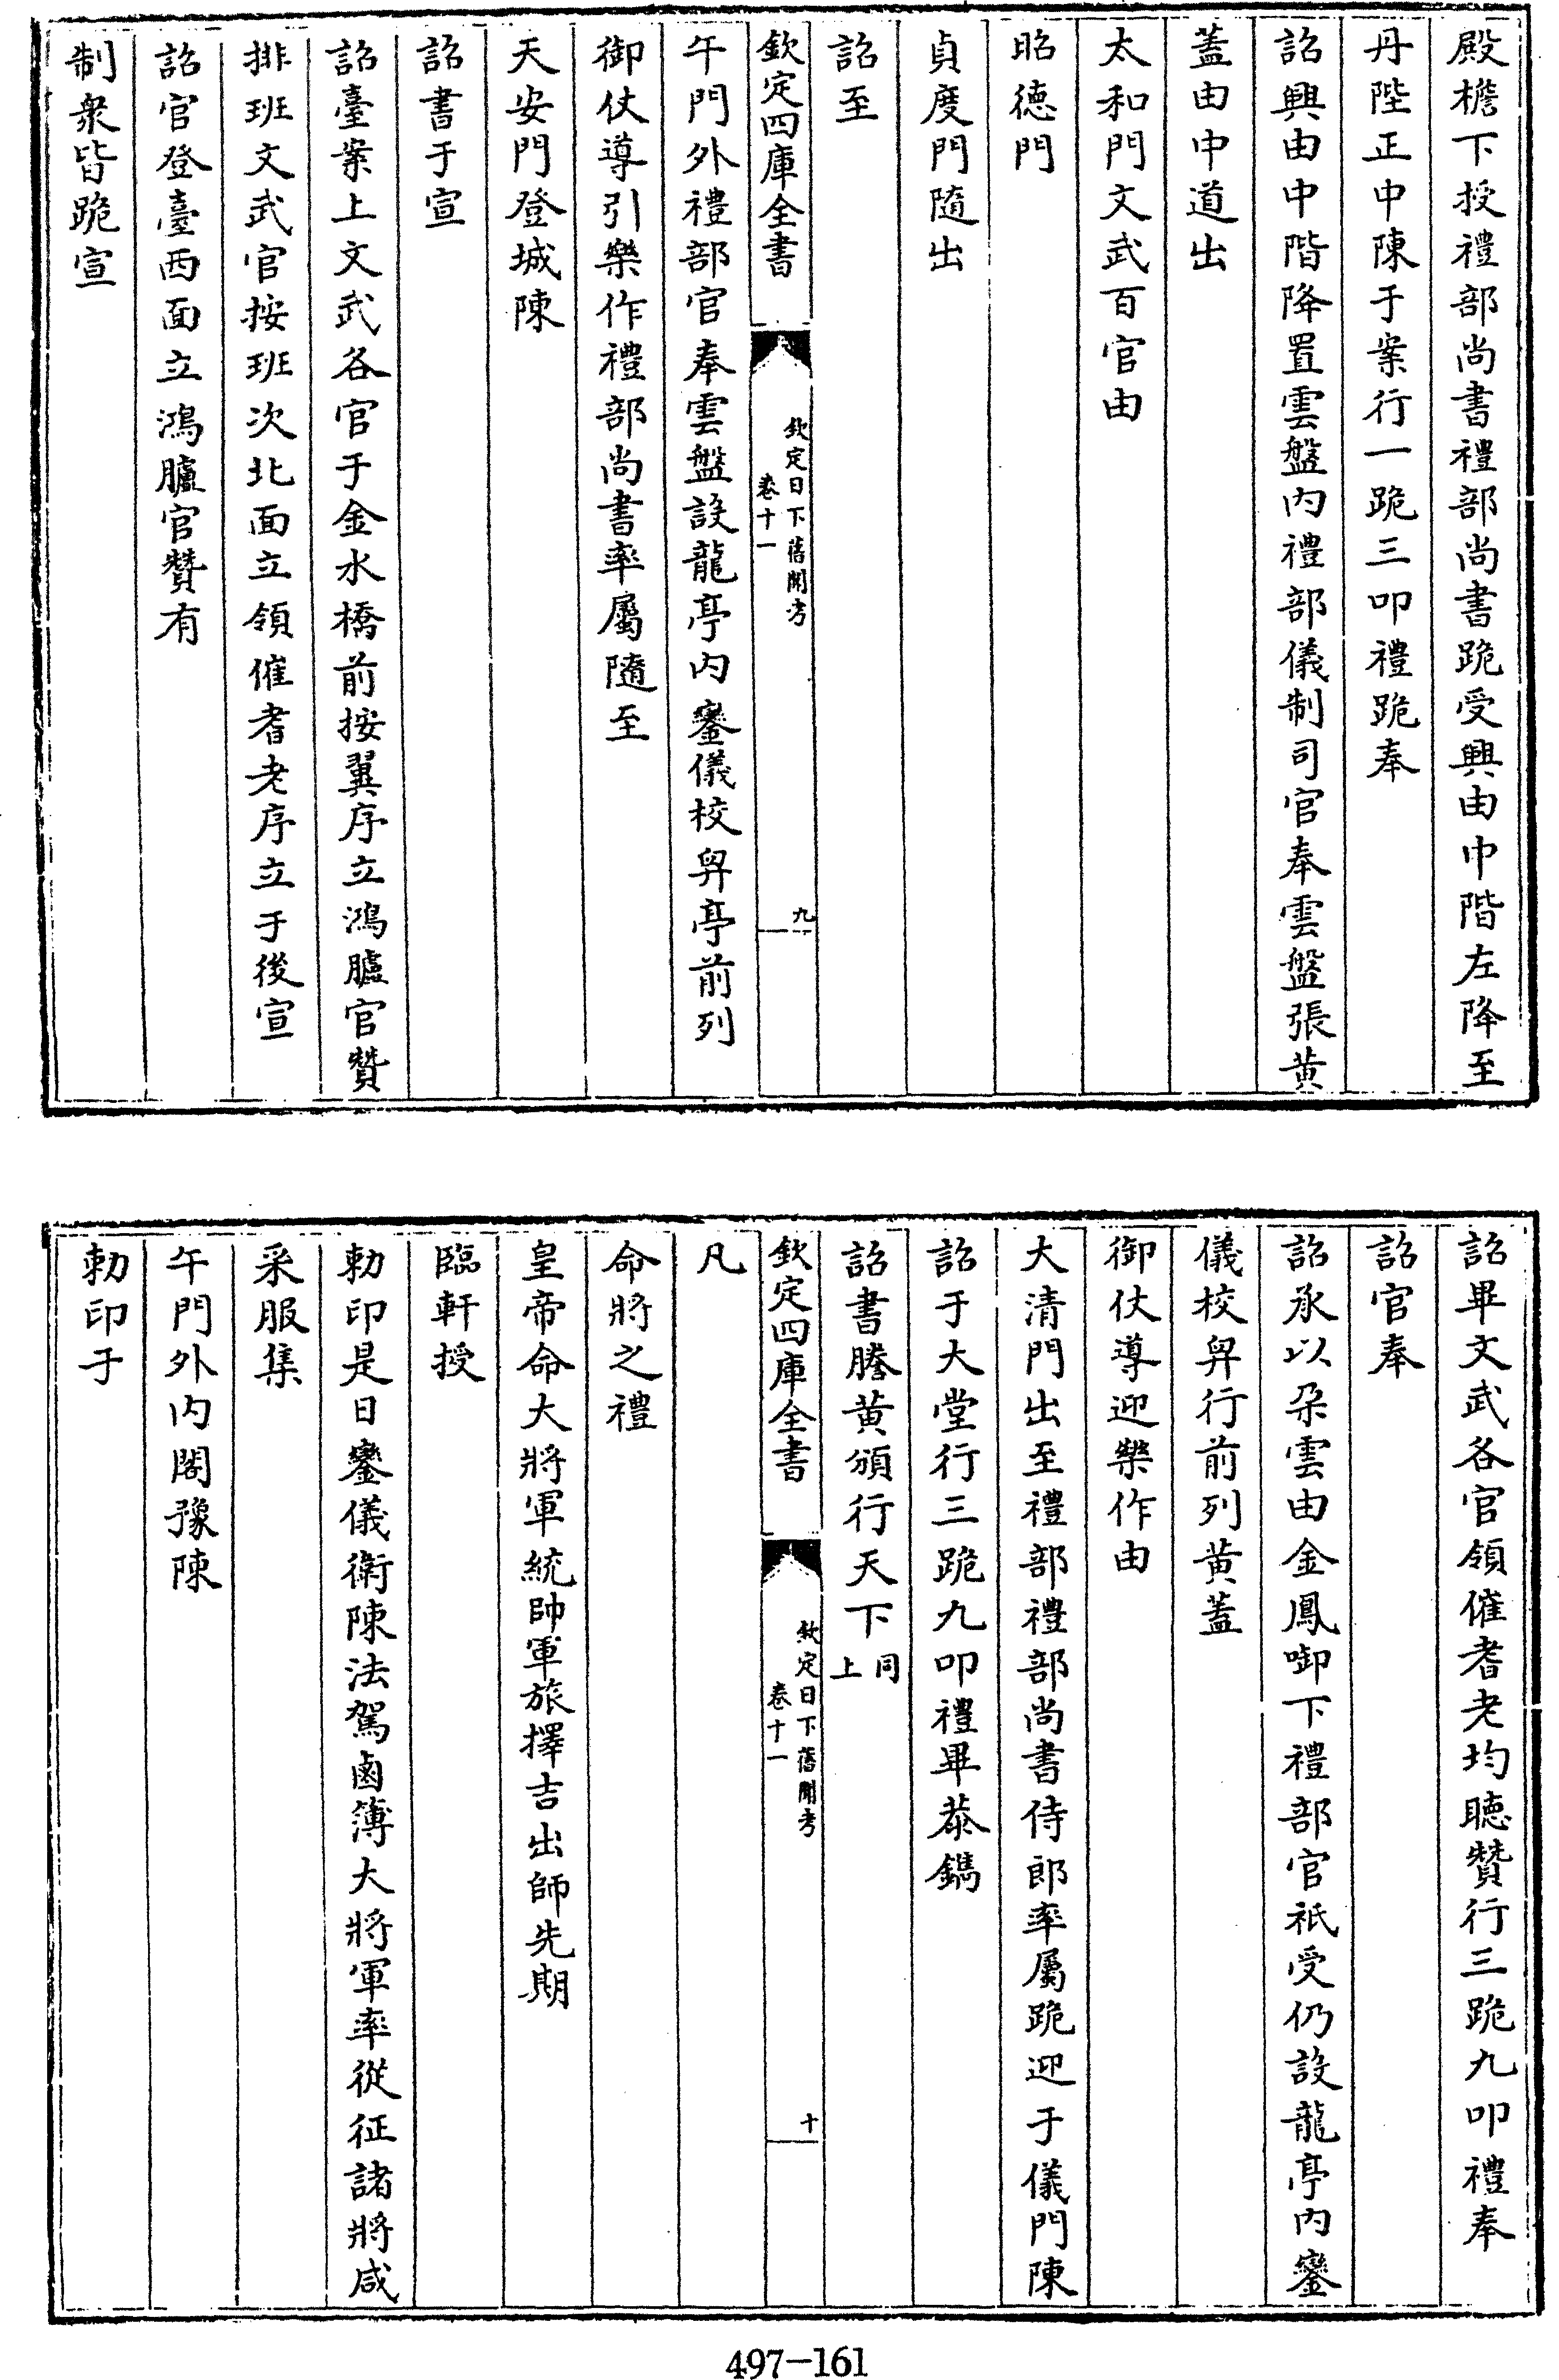 殿檐下授禮部尚書禮部尚書跪受興由中階左降至
丹陛正中陳于案行一跪三叩禮跪奉
詔興由中階降置雲盤内禮部儀制司官奉雲盤張黄
蓋由中道出
太和門文武百官由
昭德門
貞度門隨出
詔至
欽定四庫全書
欽定日下舊聞考
卷十一
九
午門外禮部官奉雲盤設龍亭内鑾儀校舁亭前列
御仗導引樂作禮部尚書率屬隨至
天安門登城陳
詔書于宣
詔臺案上文武各官于金水橋前按翼序立鴻臚官贊
排班文武官按班次北面立領催耆老序立于後宣
詔官登臺西面立鴻臚官贊有
制衆皆跪宣
詔畢文武各官領催耆老均聴贊行三跪九叩禮奉
詔官奉
詔承以朶雲由金鳳啣下禮部官祇受仍設龍亭内鑾
儀校舁行前列黄蓋
御仗導迎樂作由
大清門出至禮部禮部尚書侍郎率屬跪迎于儀門陳
詔于大堂行三跪九叩禮畢恭鐫
詔書謄黄頒行天下同上
欽定四庫全書
欽定日下舊聞考
卷十一
十
凡
命將之禮
皇帝命大將軍統帥軍旅擇吉出師先期
臨軒授
勅印是日鑾儀衛陳法駕鹵簿大將軍率從征諸將咸
采服集
午門外内閣豫陳
勅印于
497-161